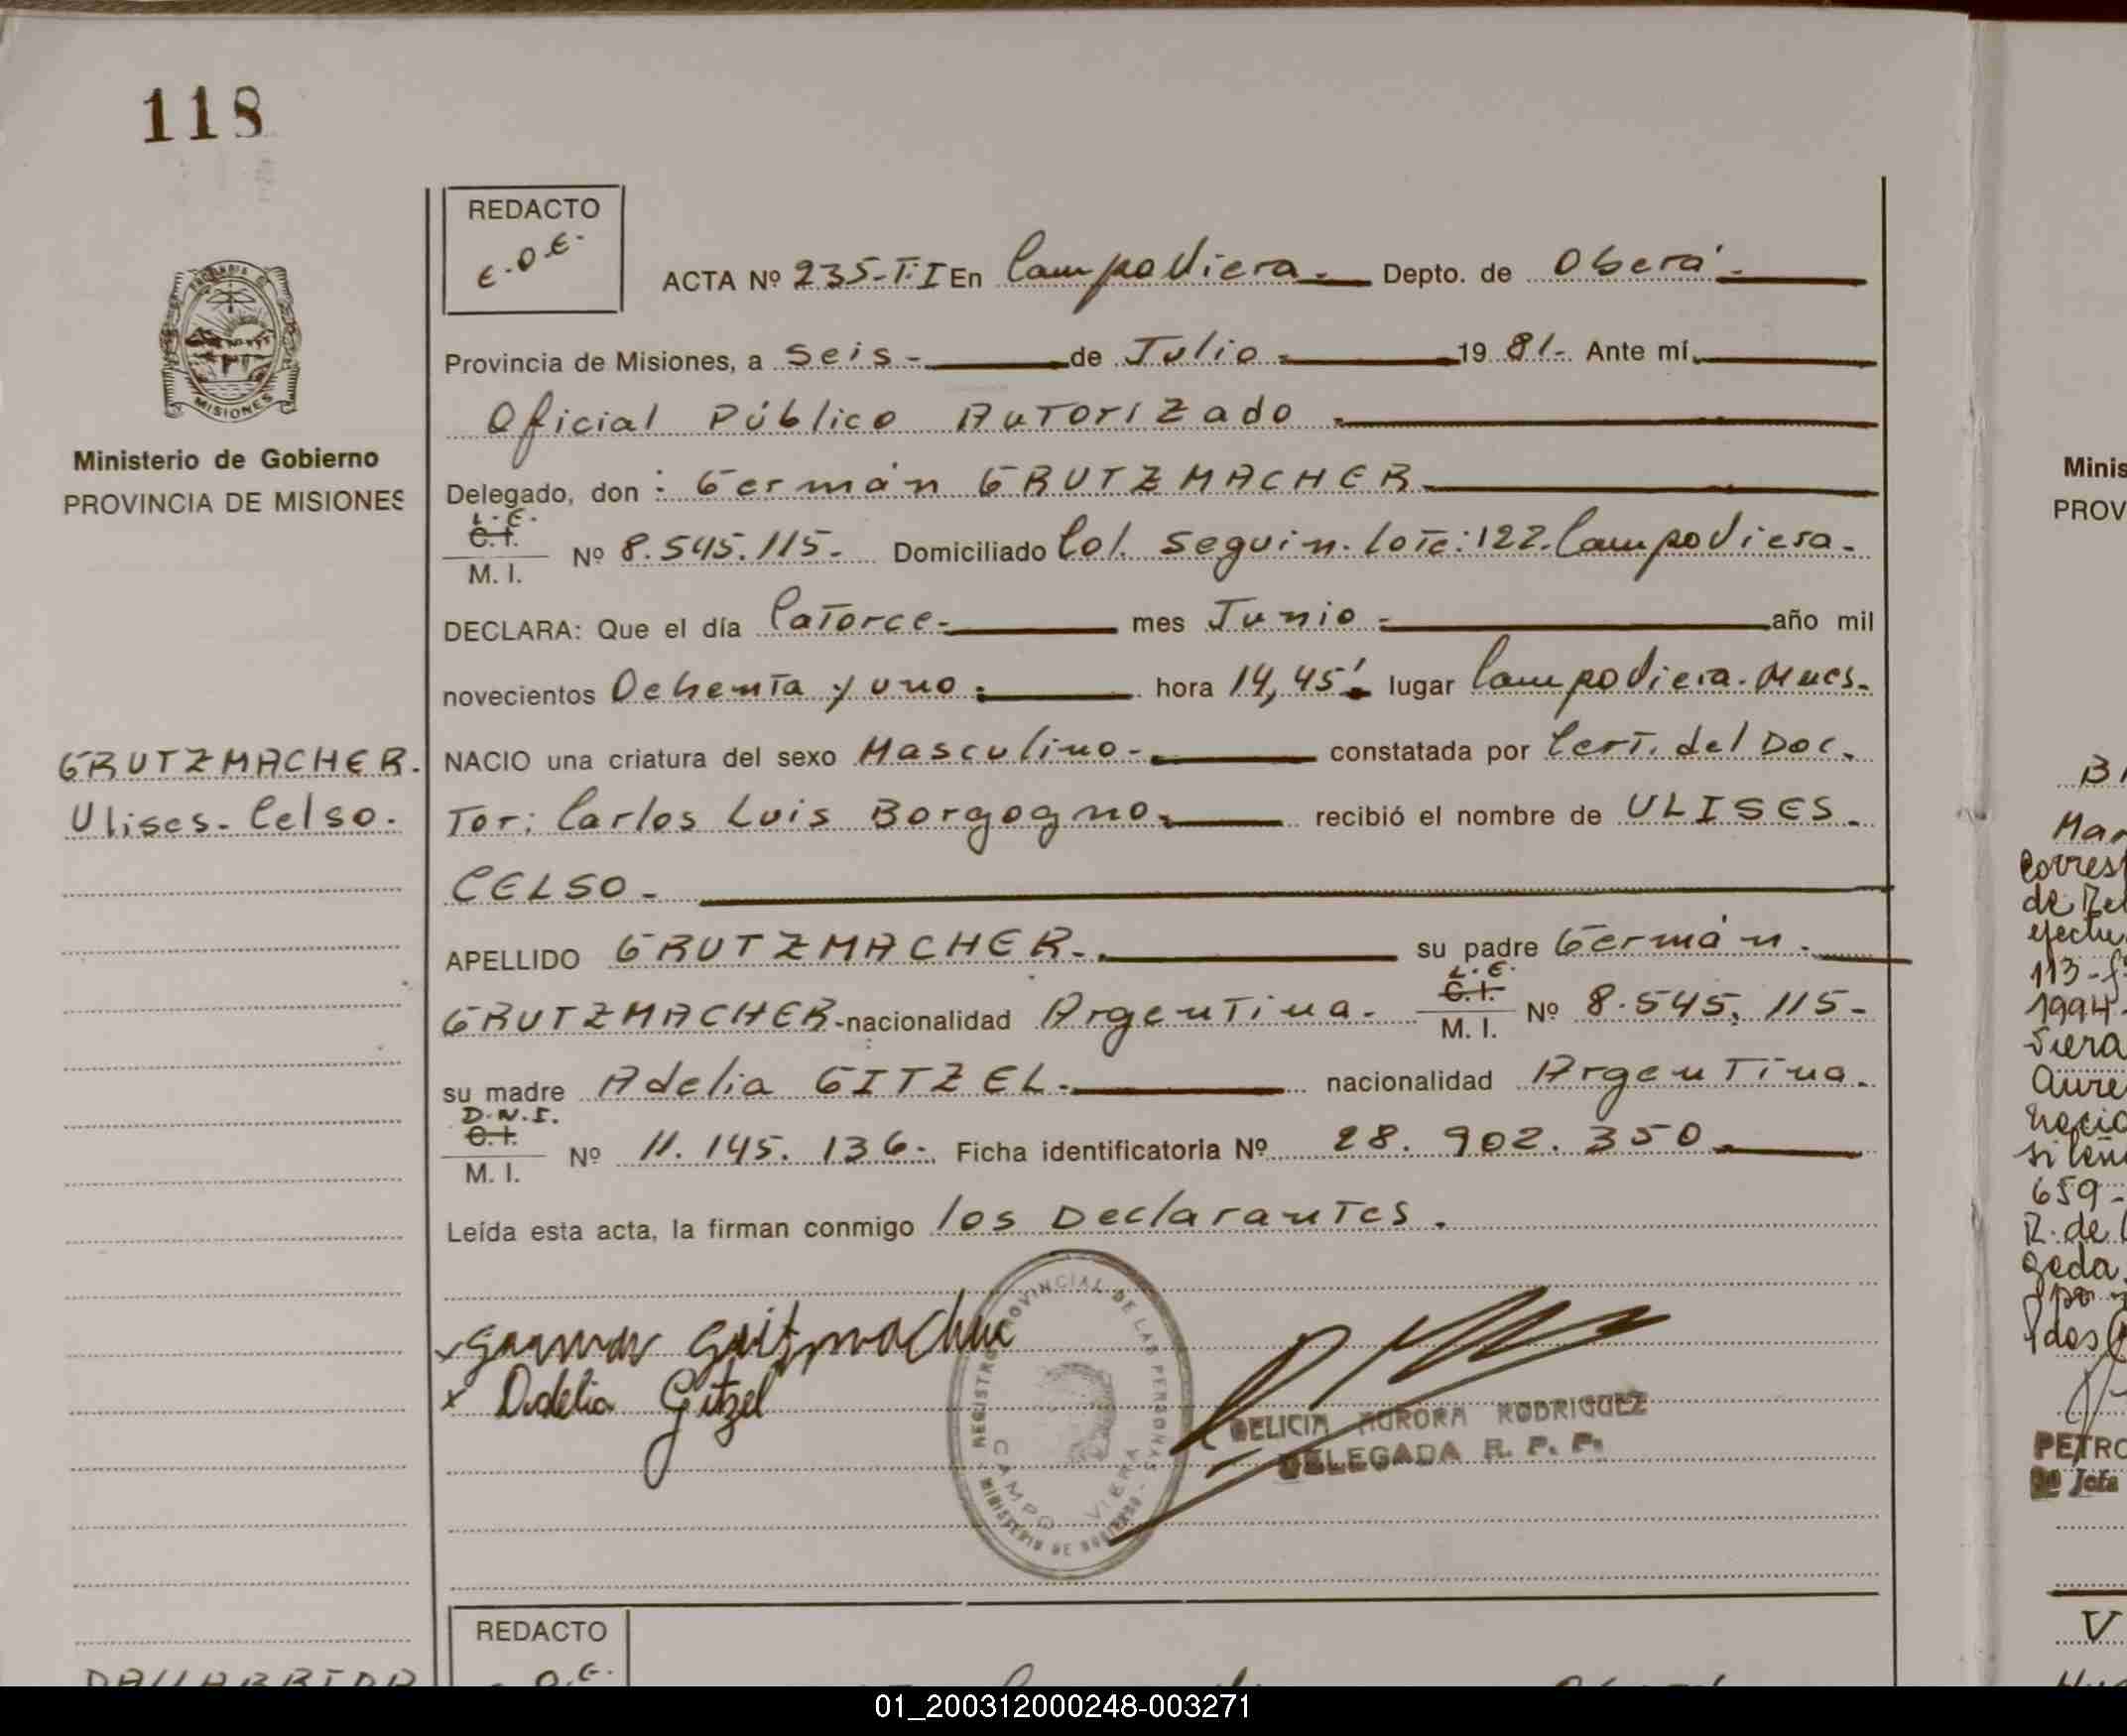 118
REDACTO
E.O.E.
ACTA Nº 235-T.I En Campo Viera.- Depto. de Oberá.-
Provincia de Misiones, a Seis.- de Julio.- 19 81.- Ante mí,
Oficial Público Autorizado.-
Ministerio de Gobierno
PROVINCIA DE MISIONES
MISIONES
Delegado, don: Germán GRUTZMACHER.-
L.E.
C.I.
M. I. Nº 8.545.115.- Domiciliado Col. Seguin. Lote: 122. Campo Viera.-
DECLARA: Que el día Catorce.- mes Junio.- año mil
novecientos Ochenta y uno.- hora 14,45'.- lugar Campo Viera. Mnes.-
GRUTZMACHER.
Ulises. Celso.
NACIO una criatura del sexo Masculino.- constatada por Cert. del Doc.
Tor: Carlos Luis Borgogno.- recibió el nombre de ULISES.
CELSO.-
APELLIDO GRUTZMACHER.- su padre Germán.-
GRUTZMACHER-nacionalidad Argentina.- L.E. C.I. M. I. Nº 8.545.115-
su madre Adelia GITZEL.- nacionalidad Argentina.
D.N.I.
C.I.
M. I. Nº 11.145.136.- Ficha identificatoria Nº 28.902.350.-
Leída esta acta, la firman conmigo los Declarantes.
Adelia Gitzel
REGISTRO PROVINCIAL DE LAS PERSONAS
CAMPO VIERA
MINISTERIO DE GOBIERNO
DELICIA AURORA RODRIGUEZ
DELEGADA R. P. P.
REDACTO
Minis
PROV
Mar
de Re
113-f
1994
Viera
659-
R. de
geda
PETRO
Jefa
01_200312000248-003271